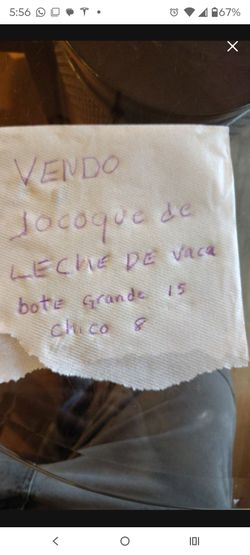 5:56
67%
VENDO
Jocoque de
LECHE DE vaca
bote Grande 15
chico 8